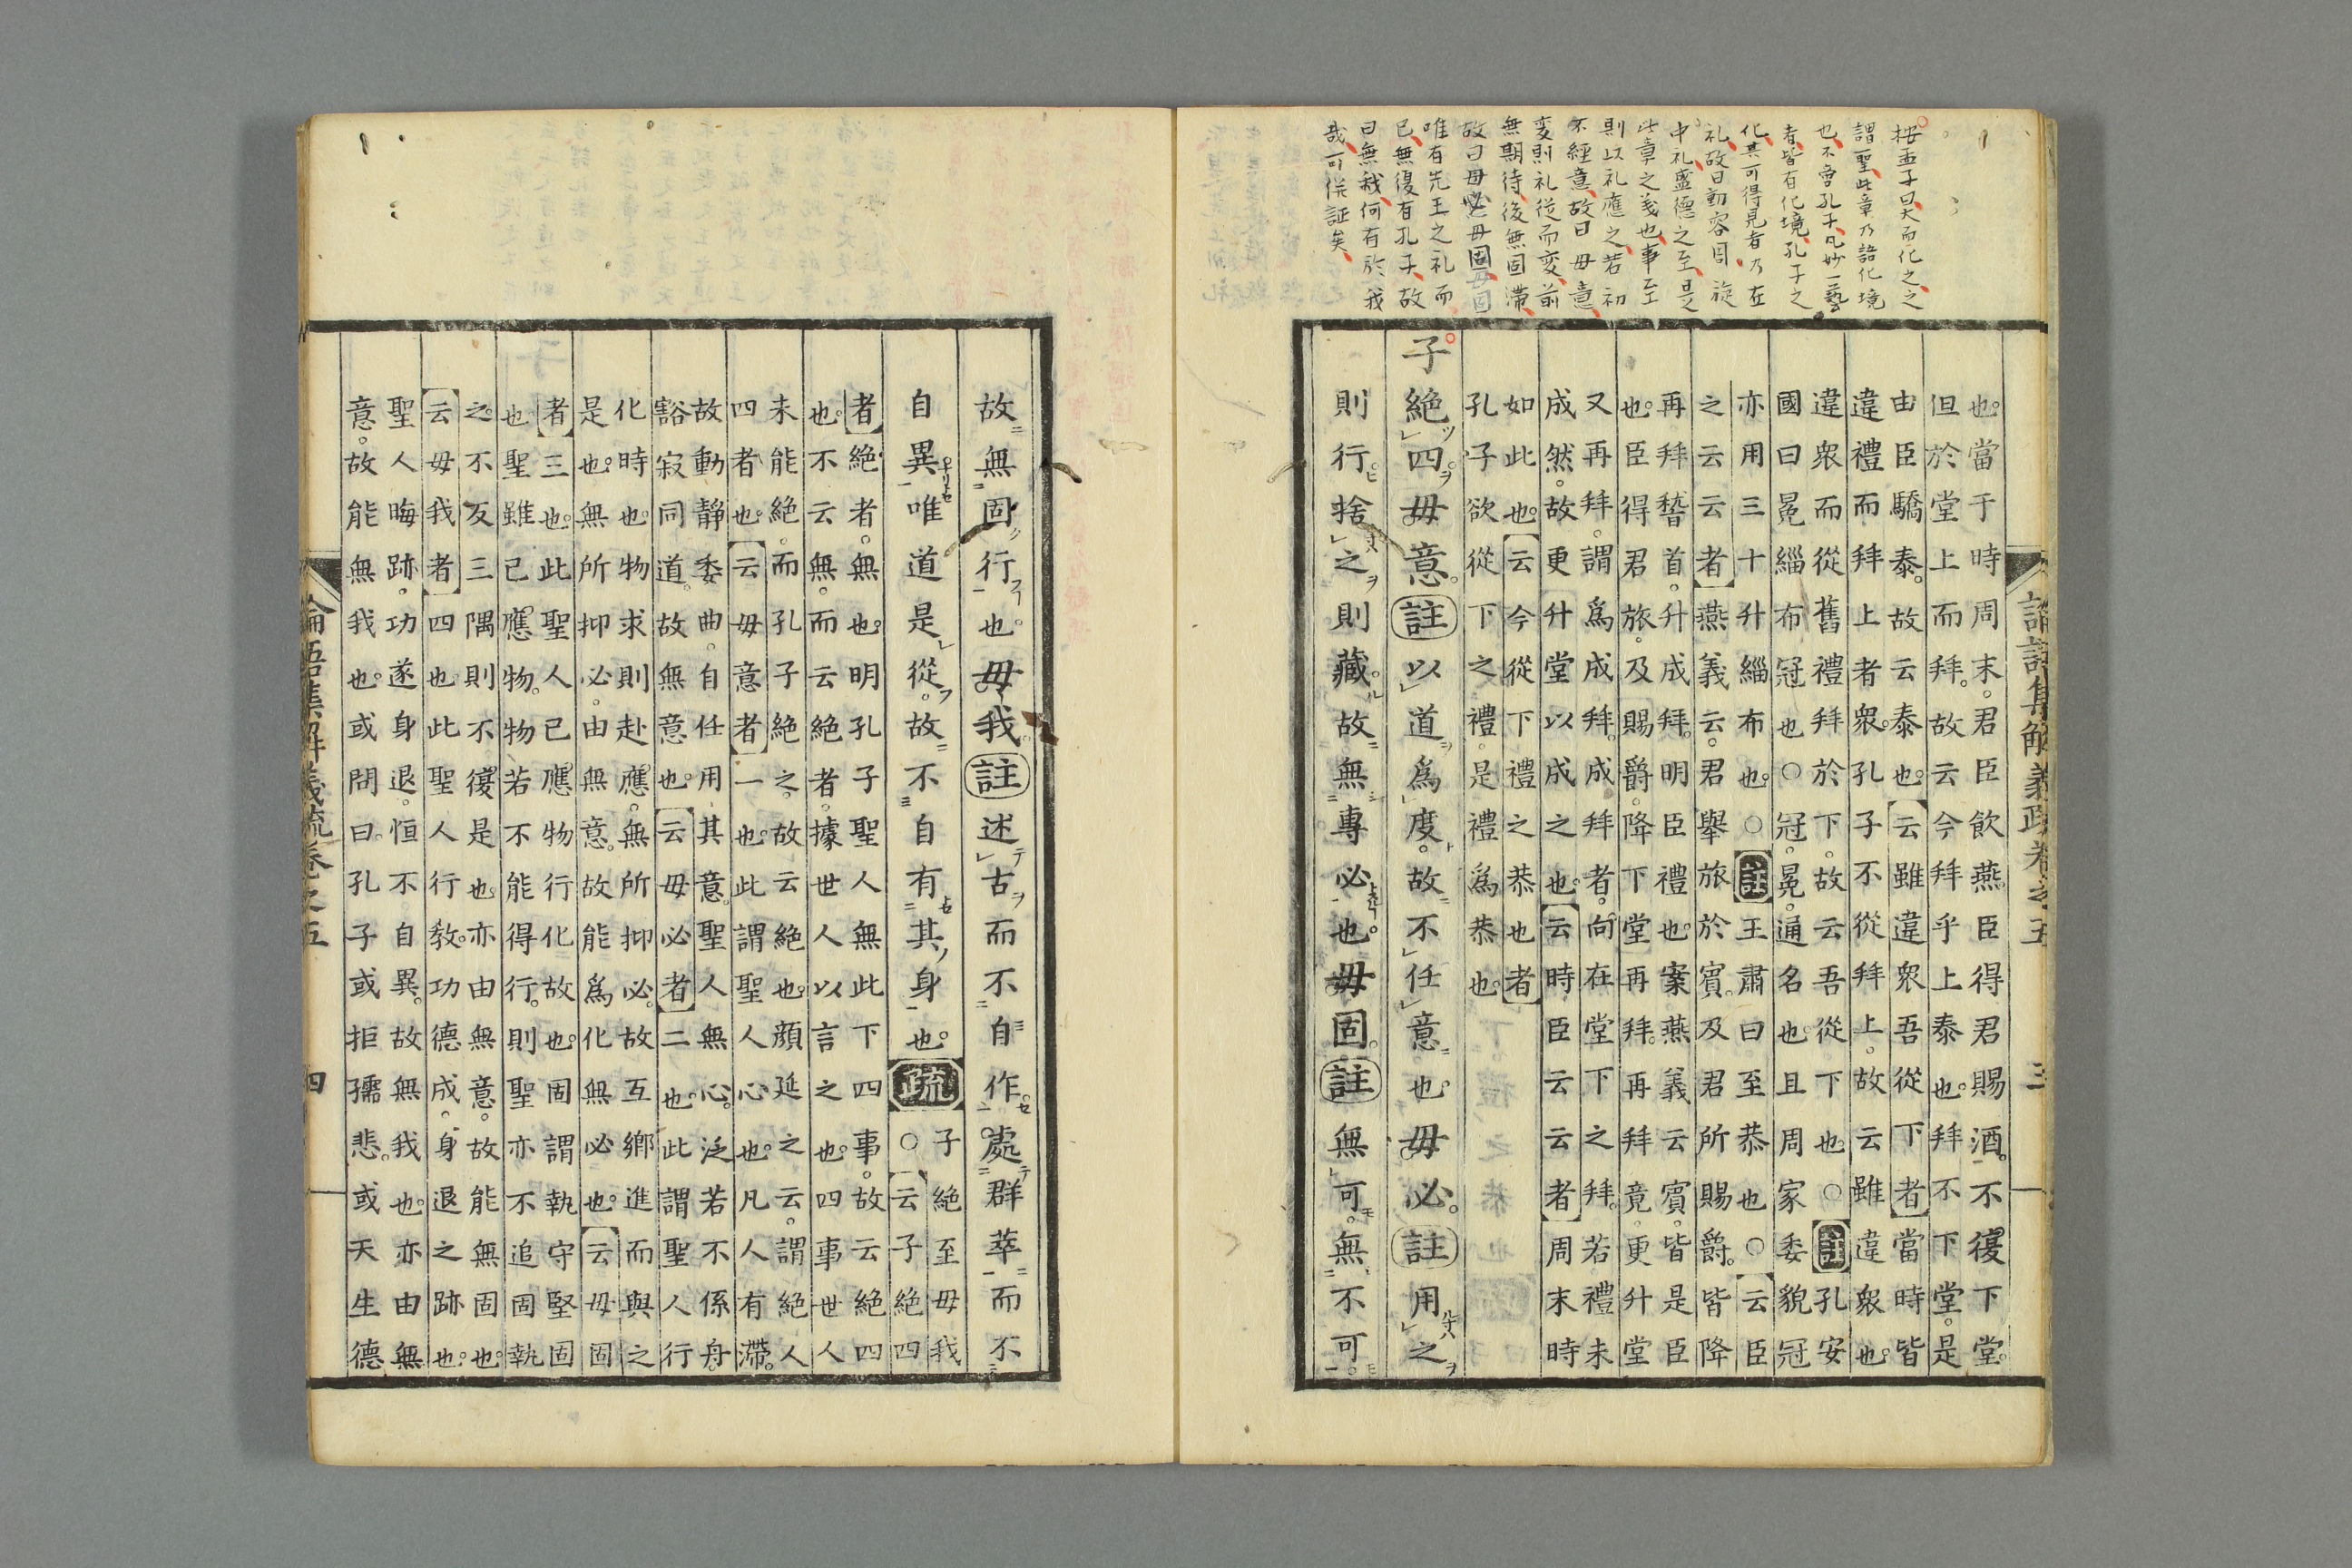 按孟子曰大而化之之
謂聖此章乃語化境
也不啻孔子凡妙一藝
者皆有化境孔子之
化其可得見者乃在
礼故曰動容周旋
中礼盛德之至是
此章之義也事至
則以礼應之若初
不經意故曰毋意
変則礼從而変前
無期待後無固滞
故曰毋必毋固
唯有先王之礼而
已無復有孔子故
曰無我何有於我
哉可併証矣
論語集解義疏卷之五 三
也當于時周末君臣飲燕臣得君賜酒不復下堂
但於堂上而拜故云今拜乎上泰也拜不下堂是
由臣驕泰故云泰也云雖違衆吾從下者當時皆
違禮而拜上者衆孔子不從拜上故云雖違衆也
違衆而從舊禮拜於下故云吾從下也○註孔安
國曰冕緇布冠也○冠冕通名也且周家委貌冠
亦用三十升緇布也○註王肅曰至恭也○云臣
之云云者燕義云君舉旅於賓及君所賜爵皆降
再拜稽首升成拜明臣禮也案燕義云賓皆是臣
也臣得君旅及賜爵降下堂再拜再拜竟更升堂
又再拜謂爲成拜成拜者向在堂下之拜若禮未
成然故更升堂以成之也云時臣云云者周末時
如此也云今從下禮之恭也者
孔子欲從下之禮是禮爲恭也
子絶四毋意註以道爲度故不任意也毋必註用之
則行捨之則藏故無專必也毋固註無可無不可
故無固行也毋我註述古而不自作處群萃而不
自異唯道是從故不自有其身也疏子絶至毋我
○云子絶四
者絶者無也明孔子聖人無此下四事故云絶四
也不云無而云絶者據世人以言之也四事世人
未能絶而孔子絶之故云絶也顔延之云謂絶人
四者也云毋意者一也此謂聖人心也凡人有滯
故動静委曲自任用其意聖人無心泛若不係舟
豁寂同道故無意也云毋必者二也此謂聖人行
化時也物求則赴應無所抑必故互鄉進而與之
是也無所抑必由無意故能爲化無必也云毋固
者三也此聖人已應物行化故也固謂執守堅固
也聖雖已應物物若不能得行則聖亦不追固執
之不反三隅則不復是也亦由無意故能無固也
云毋我者四也此聖人行教功德成身退之跡也
聖人晦跡功遂身退恒不自異故無我也亦由無
意故能無我也或問曰孔子或拒孺悲或天生德
論語集解義疏卷之五 四